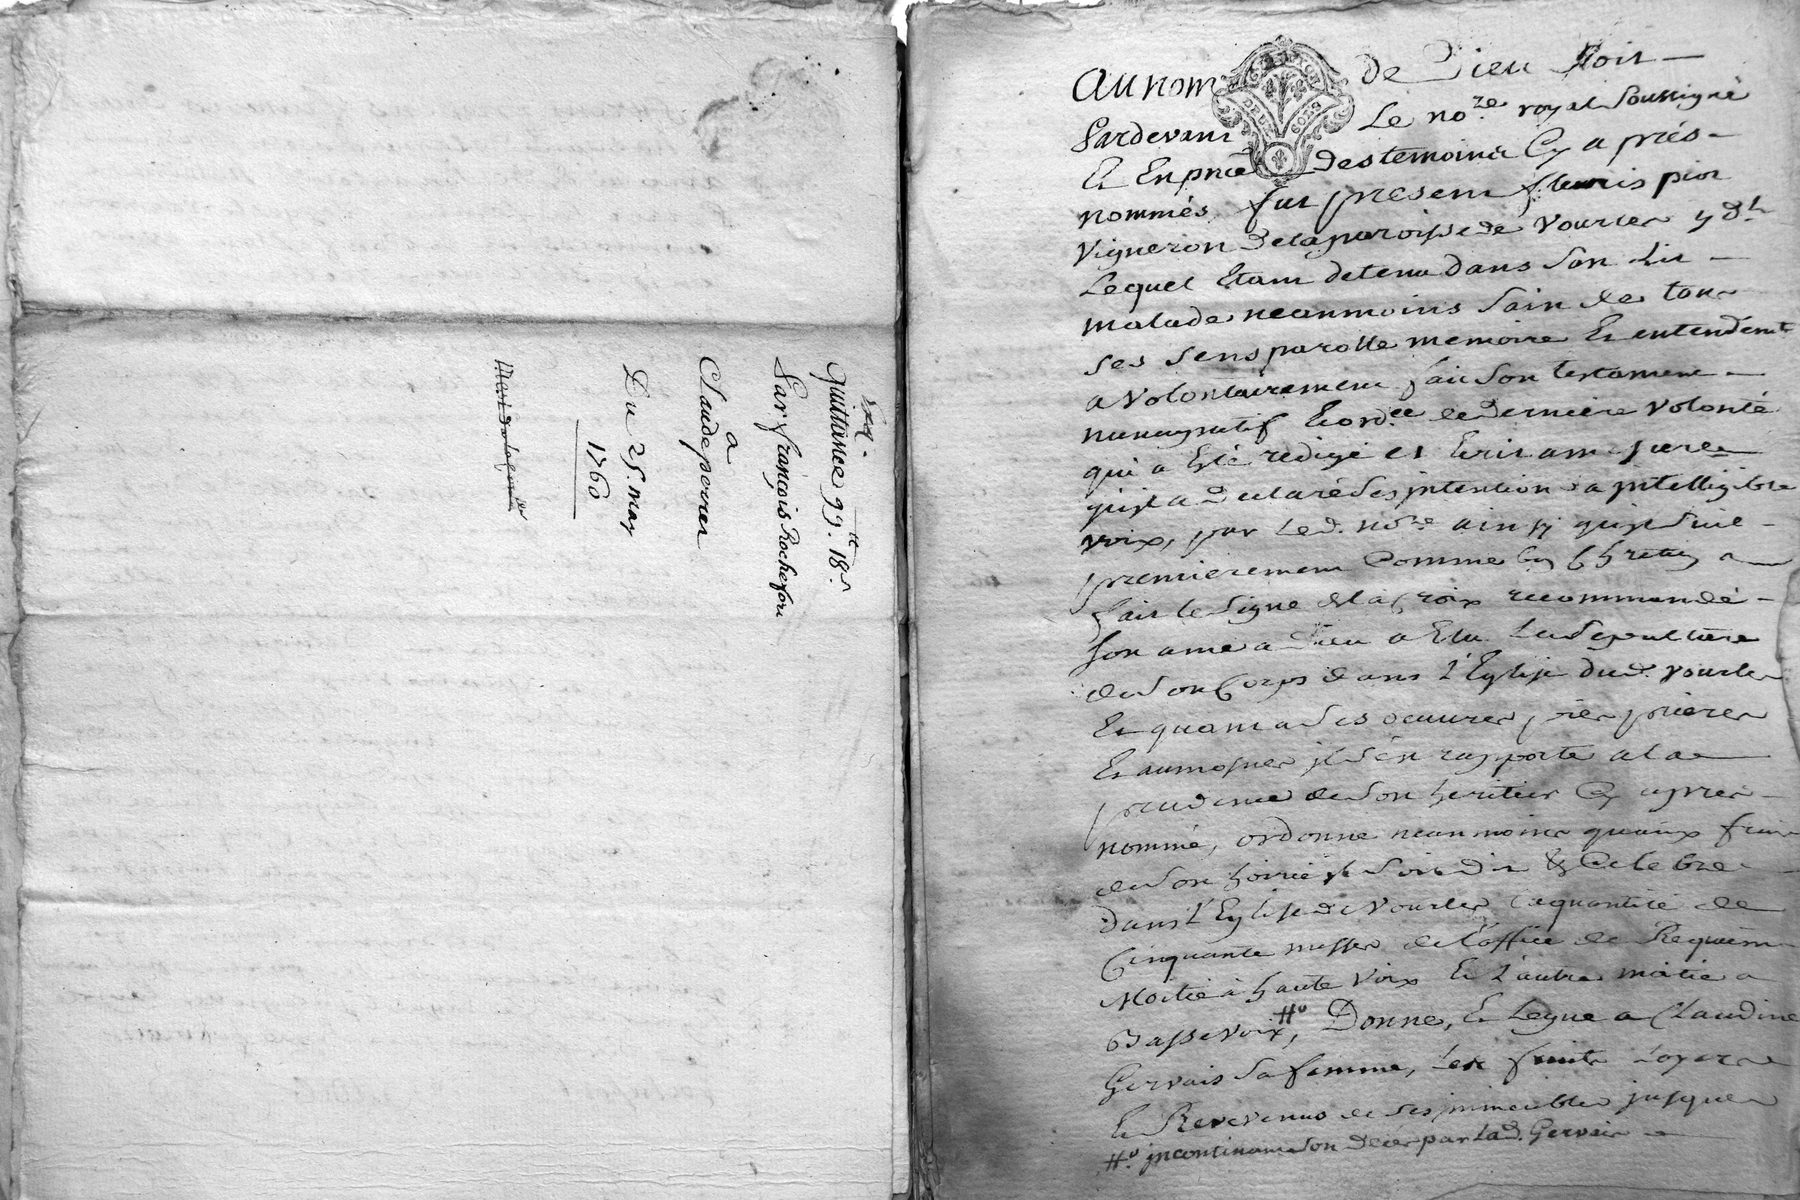 quittance 99.tt 18.s
Par françois Rochefort
a
Claude perrer
Du 25. may
1760
Au nom de Dieu soit
GENERALITE DE LYON
DEUX SOLS
Pardevant Le no.re royal soussigné
Et En pnce des temoins Cy aprés
nommés fut present fleuris pion
Vigneron de la paroisse de Vourles
Lequel Etant detenu dans son Lit
malade neanmoins sain de tous
ses sens parolle memoire Et entendemt
a Volontairement fait son testament
nuncupatif Et ord.ce de derniere volonté
qui a Eté redigé et Ecrit a mesure
quil a declaré ses intentions a intelligible
voix, par Led. no.re ainsy quil suit
premierement Comme bon Chretien a
fait le signe de la Croix recommandé
son ame a Dieu a Elu La sepulture
de son Corps dans l'Eglise dud. vourles
Et quant a ses oeuvres pies prieres
Et aumosnes il s'en rapporte a la
prudence de son heritier Cy aprés
nommé, ordonne neanmoins quaux frais
de son hoirie il soit dit & Celebré
dans l'Eglise de Vourles la quantité de
Cinquante messes de l'office de Requiem
Moitié à haute Voix Et l'autre moitié a
Basse voix, Donne, Et Legue a Claudine
Gervais sa femme, Les fruits Loyers
Et Revevenus de ses immeubles jusques
incontinant son decés par lad. Gervais